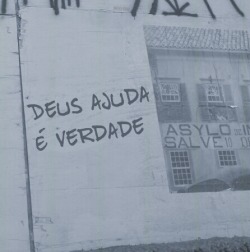 DEUS AJUDA
É VERDADE
ASYLO
SALVE